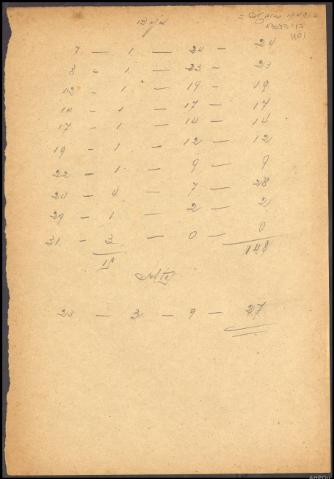 7 — 1 — 24 — 24
8 - 1 - 23 - 23
12 - 1 - 19 - 19
14 - 1 - 17 - 17
17 - 1 - 14 - 14
19 - 1 - 12 - 12
22 - 1 - 9 - 9
24 - 4 - 7 - 28
29 - 1 - 2 - 2
31 - 3 - 0 - 0
15 148
— 3 - 9 - 27